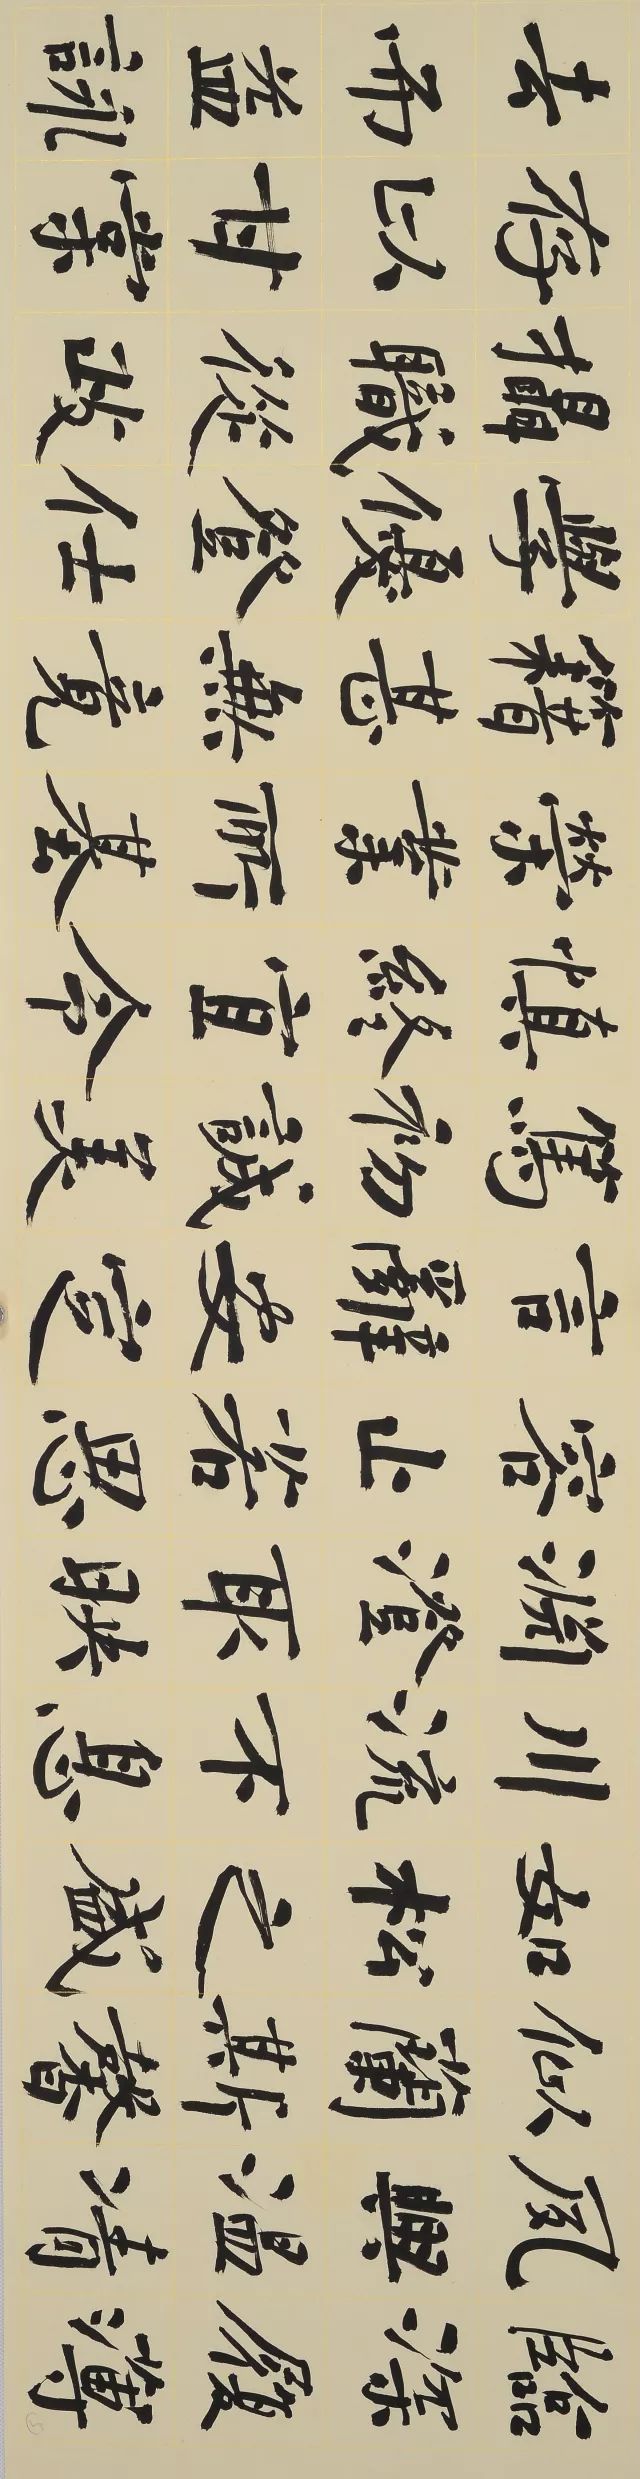 臨深履薄
夙興溫清
似蘭斯馨
如松之盛
川流不息
淵澄取映
容止若思
言辭安定
篤初誠美
慎終宜令
榮業所基
籍甚無竟
學優登仕
攝職從政
存以甘棠
去而益詠